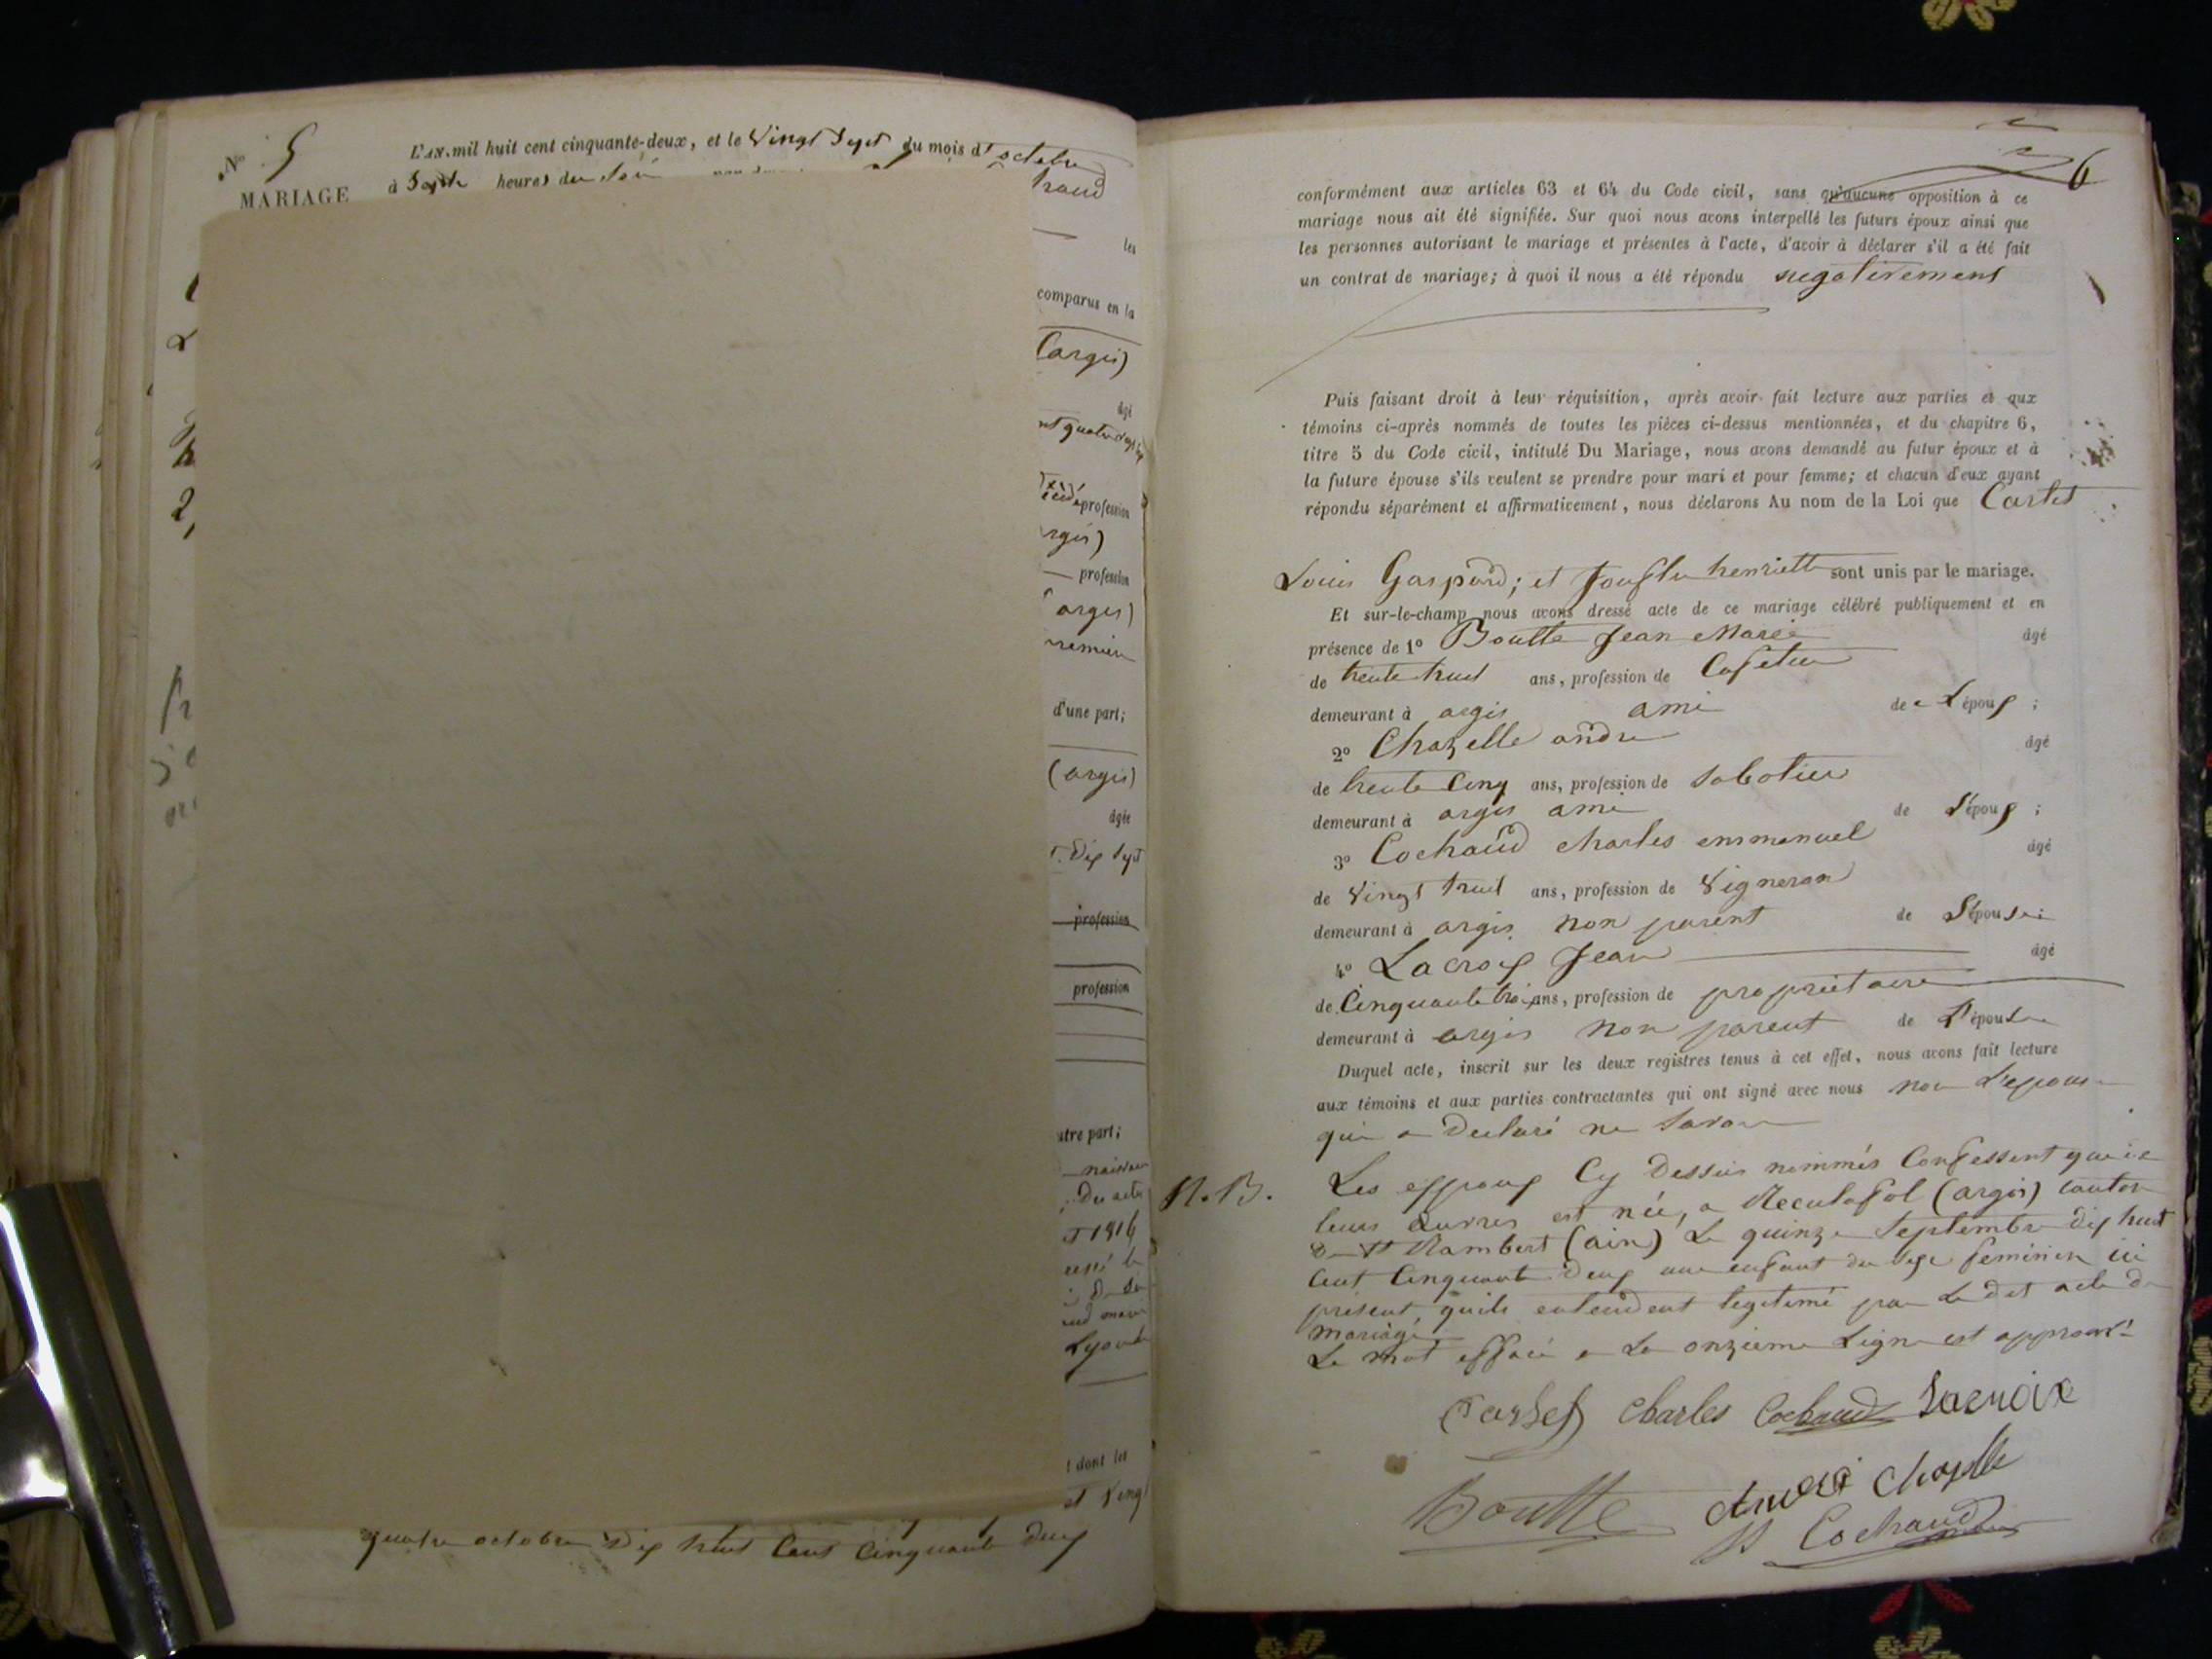 No 5
L'AN mil huit cent cinquante-deux, et le Vingt Sept du mois d'octobre
MARIAGE
à Sept heures du Soir
haud
les
comparus en la
(argis)
âgé
profession
rgis)
profession
argis)
d'une part;
(argis)
âgée
Dix Sept
profession
profession
utre part;
t dont les
et Vingt
quatre octobre Dix huit Cent Cinquante deux
6
conformément aux articles 63 et 64 du Code civil, sans qu'aucune opposition à ce
mariage nous ait été signifiée. Sur quoi nous avons interpellé les futurs époux ainsi que
les personnes autorisant le mariage et présentes à l'acte, d'avoir à déclarer s'il a été fait
un contrat de mariage; à quoi il nous a été répondu negativement
Puis faisant droit à leur réquisition, après avoir fait lecture aux parties et aux
témoins ci-après nommés de toutes les pièces ci-dessus mentionnées, et du chapitre 6,
titre 5 du Code civil, intitulé Du Mariage, nous avons demandé au futur époux et à
la future épouse s'ils veulent se prendre pour mari et pour femme; et chacun d'eux ayant
répondu séparément et affirmativement, nous déclarons Au nom de la Loi que Carlet
Louis Gaspard; et henriette sont unis par le mariage.
Et sur-le-champ nous avons dressé acte de ce mariage célébré publiquement et en
présence de 1o Boutte Jean Marie âgé
de trente huit ans, profession de Cafetier
demeurant à argis ami de L'époux ;
2o Chazelle andré âgé
de trente Cinq ans, profession de Sabotier
demeurant à argis ami de L'époux ;
3o Cochaud charles emmanuel âgé
de Vingt huit ans, profession de Vigneron
demeurant à argis non parent de L'épouse;
4o Lacroix Jean âgé
de Cinquante trois ans, profession de propriétaire
demeurant à argis non parent de L'épouse
Duquel acte, inscrit sur les deux registres tenus à cet effet, nous avons fait lecture
aux témoins et aux parties contractantes qui ont signé avec nous non L'epouse
qui a Declaré ne Savoir
N.B. Les epoux Cy Dessus nommés Confessent que de
leurs œuvres est née, a Reculafol (argis) canton
de St Rambert (ain) Le quinze Septembre dix huit
Cent Cinquante Deux une enfant du Sexe feminin ici
présent, quils entendent legitimé par Le dit acte de
mariage
Le mot effacé a La onzieme Ligne est approuvé
Carlet Charles Cochaud Lacroix
Boutte André Chazelle
Cochaud